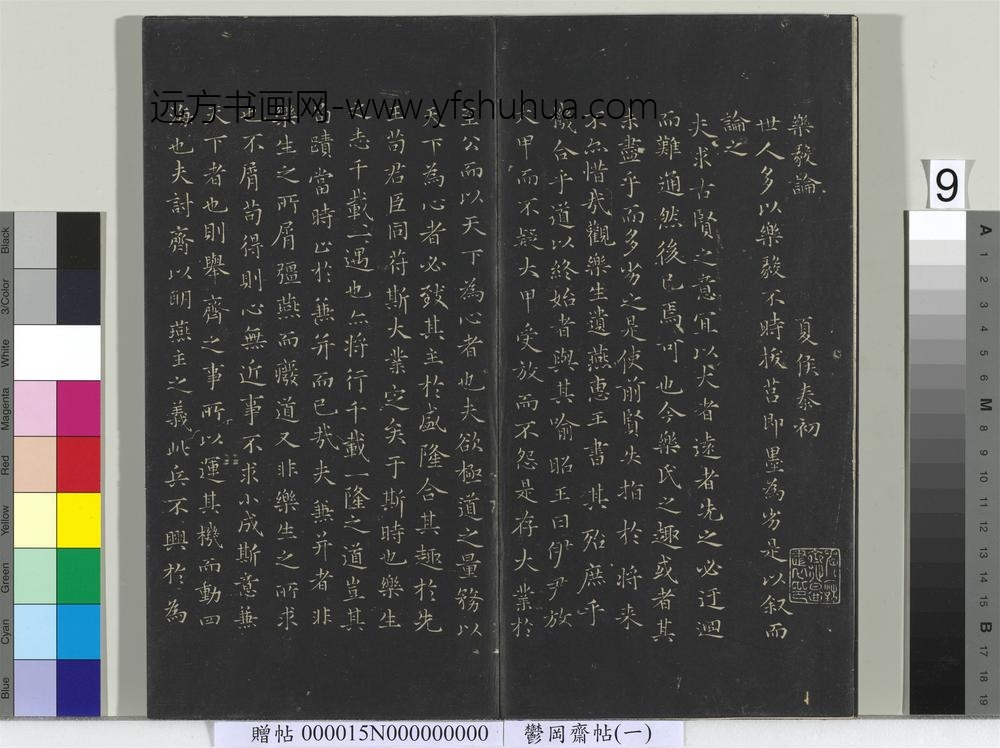 樂毅論
夏侯泰初
世人多以樂毅不時拔莒即墨為劣是以叙而
論之
夫求古賢之意宜以大者遠者先之必迂迴
而難通然後已焉可也今樂氏之趣或者其
未盡乎而多劣之是使前賢失指於將来
不亦惜哉觀樂生遺燕惠王書其殆庶乎
機合乎道以終始者與其喻昭王曰伊尹放
大甲而不疑大甲受放而不怨是存大業於
至公而以天下為心者也夫欲極道之量務以
天下為心者必致其主於盛隆合其趣於先
王苟君臣同苻斯大業定矣于斯時也樂生
之志千載一遇也亦將行千載一隆之道豈其
局蹟當時止於兼并而已哉夫兼并者非
樂生之所屑彊燕而廢道又非樂生之所求
也不屑苟得則心無近事不求小成斯意兼
天下者也則舉齊之事所以運其機而動四
海也夫討齊以明燕主之義此兵不興於為
远方书画网-www.yfshuhua.com
贈帖 000015N000000000 鬱岡齋帖(一)
9
Black
3/Color
White
Magenta
Red
Yellow
Green
Cyan
Blue
A
1
2
3
4
5
6
M
8
9
10
11
12
13
14
15
B
17
18
19